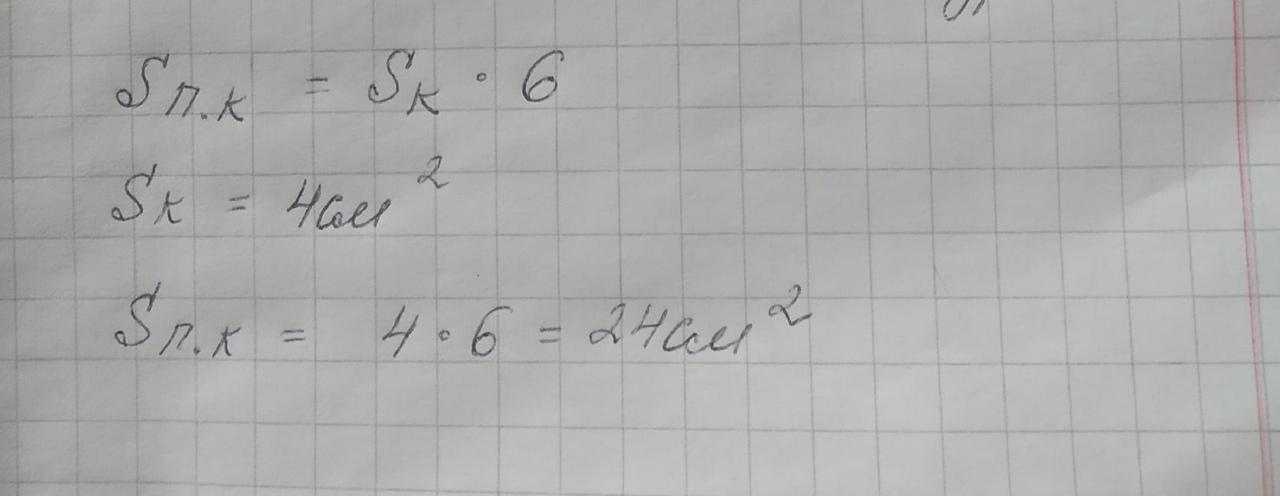 Sп.к = Sк · 6
Sк = 4см²
Sп.к = 4 · 6 = 24см²